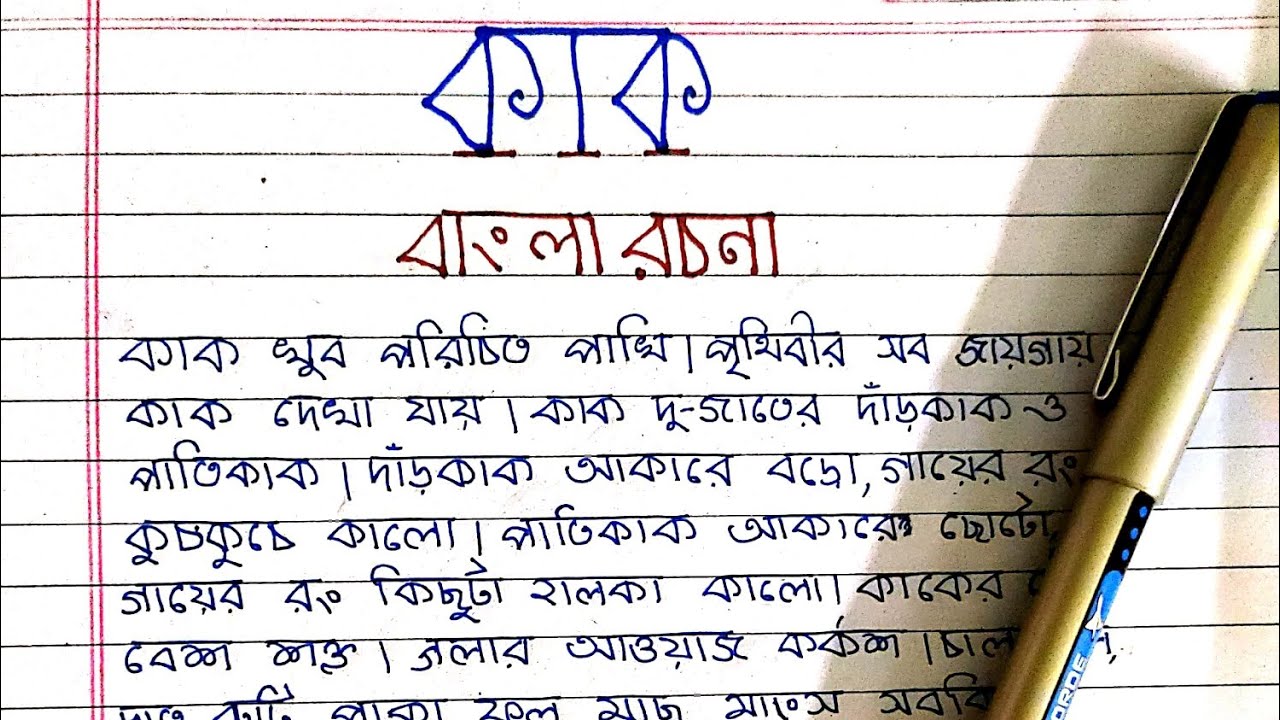 কাক
বাংলা রচনা
কাক খুব পরিচিত পাখি। পৃথিবীর সব জায়গায়
কাক দেখা যায়। কাক দু-জাতের দাঁড়কাক ও
পাতিকাক। দাঁড়কাক আকারে বড়ো, গায়ের রং
কুচকুচে কালো। পাতিকাক আকারে ছোটো,
গায়ের রং কিছুটা হালকা কালো। কাকের
বেশ শক্ত। গলার আওয়াজ কর্কশ।
রুটি পাকা ফল মাছ মাংস